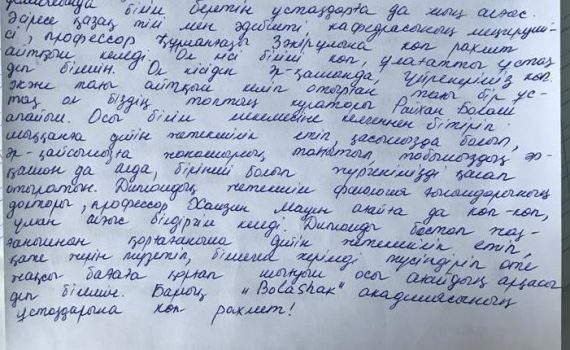 білім беретін ұстаздарға да мың алғыс.
Әсіресе қазақ тілі мен әдебиеті кафедрасының меңгеруші-
сі, профессор Құрманғазы Зәкірұлына көп рахмет
айтқым келеді. Ол кісі білімі көп, ұлағатты ұстаз
деп білемін. Ол кісіден әр-қашанда, үйренеріміз көп.
және тағы айтқым келіп отырған тағы бір ұс-
таз ол біздің топтың кураторы Райхан Болат
апайым. Осы білім мекемесіне келгеннен бітіріп
шыққанға дейін жетекшілік етіп, қасымызда болып,
әр-қайсымызға жанашырлық танытып, тобымыздың әр-
қашан да алда, бірінші болып жүргенімізді қалап
отыратын. Дипломдық жетекшім филология ғылымдарының
докторы, профессор Жамзин Мацин ағайға да көп-көп,
ұлан алғыс білдіргім келеді. Дипломды бастап жаз-
ғанымнан қорғағаныма дейін жетекшілік етіп,
қате жерін түзетіп, білмеген жерімді түсіндіріп өте
жақсы бағаға қорғап шығуым осы ағайдың арқасы
деп білемін. Барлық "Bolashak" академиясының
ұстаздарына көп рахмет!